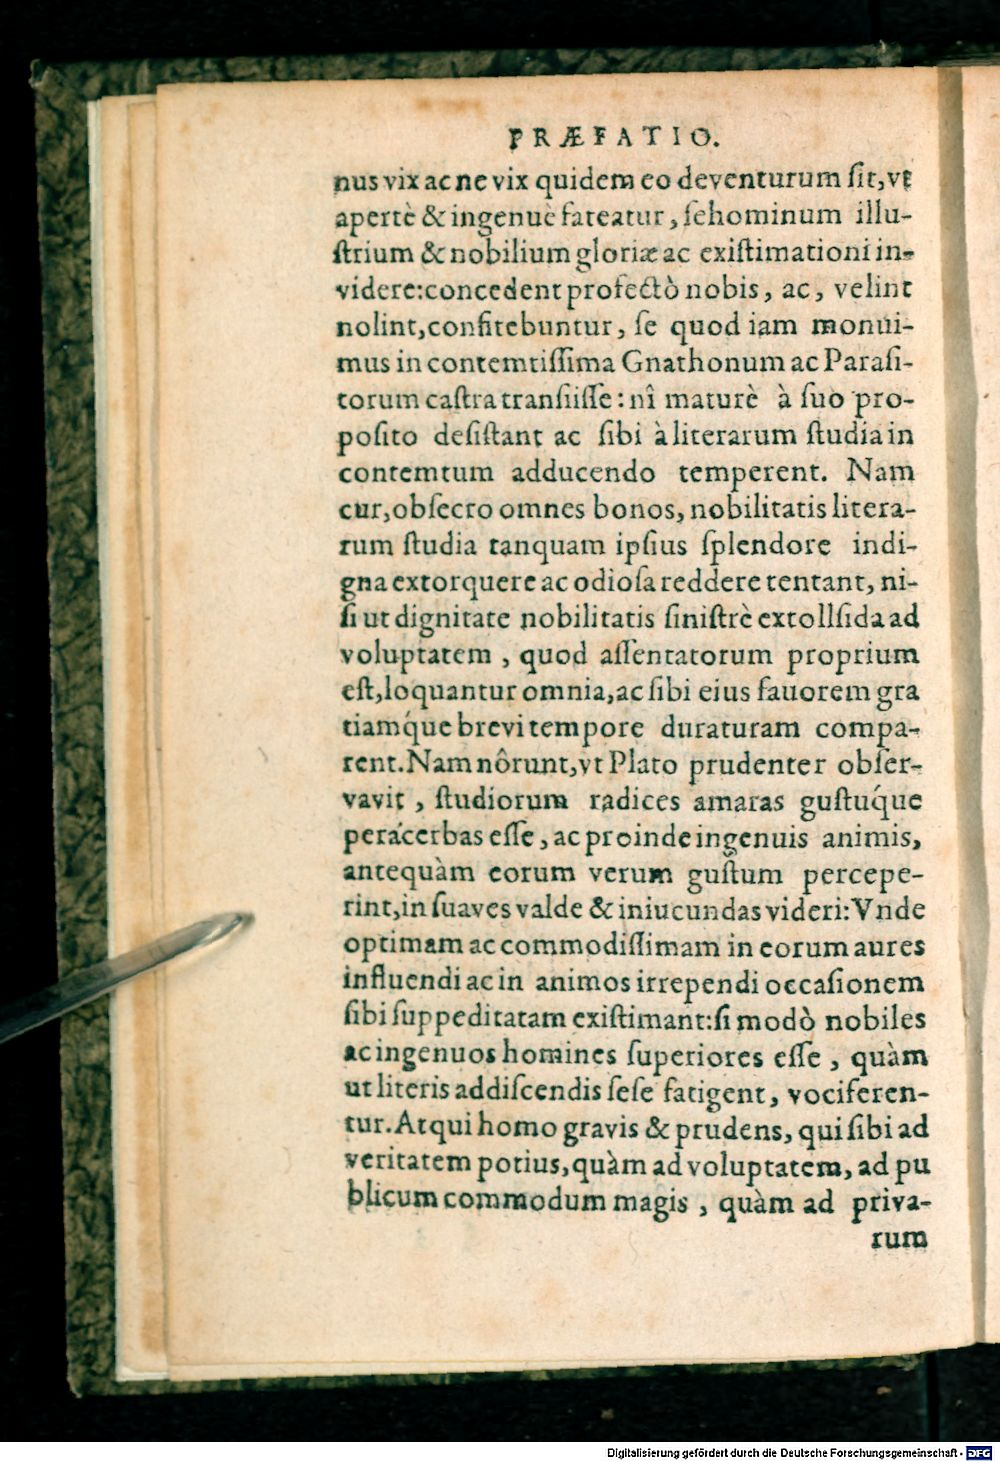 PRÆFATIO.
nus vix ac ne vix quidem eo deventurum ſit, vt
apertè & ingenuè fateatur, ſe hominum illu-
ſtrium & nobilium gloriæ ac exiſtimationi in-
videre: concedent profectò nobis, ac, velint
nolint, confitebuntur, ſe quod iam monui-
mus in contemtiſſima Gnathonum ac Paraſi-
torum caſtra tranſiiſſe: nî maturè à ſuo pro-
poſito deſiſtant ac ſibi à literarum ſtudia in
contemtum adducendo temperent. Nam
cur, obſecro omnes bonos, nobilitatis litera-
rum ſtudia tanquam ipſius ſplendore indi-
gna extorquere ac odioſa reddere tentant, ni-
ſi ut dignitate nobilitatis ſiniſtrè extollſida ad
voluptatem, quod aſſentatorum proprium
eſt, loquantur omnia, ac ſibi eius fauorem gra
tiamq́ue brevi tempore duraturam compa-
rent. Nam nôrunt, vt Plato prudenter obſer-
vavit, ſtudiorum radices amaras guſtuq́ue
peracerbas eſſe, ac proinde ingenuis animis,
antequàm eorum verum guſtum percepe-
rint, inſuaves valde & iniucundas videri: Vnde
optimam ac commodiſſimam in eorum aures
influendi ac in animos irrependi occaſionem
ſibi ſuppeditatam exiſtimant: ſi modò nobiles
ac ingenuos homines ſuperiores eſſe, quàm
ut literis addiſcendis ſeſe fatigent, vociferen-
tur. Atqui homo gravis & prudens, qui ſibi ad
veritatem potius, quàm ad voluptatem, ad pu
blicum commodum magis, quàm ad priva-
rum
Digitalisierung gefördert durch die Deutsche Forschungsgemeinschaft - DFG